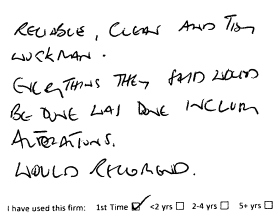 RELIABLE, CLEAN AND TIDY
WORKMAN.
EVERYTHING THEY SAID WOULD
BE DONE WAS DONE INCLUDING
ALTERATIONS.
WOULD RECOMEND.
I have used this firm: 1st Time ☑ <2 yrs ☐ 2-4 yrs ☐ 5+ yrs ☐